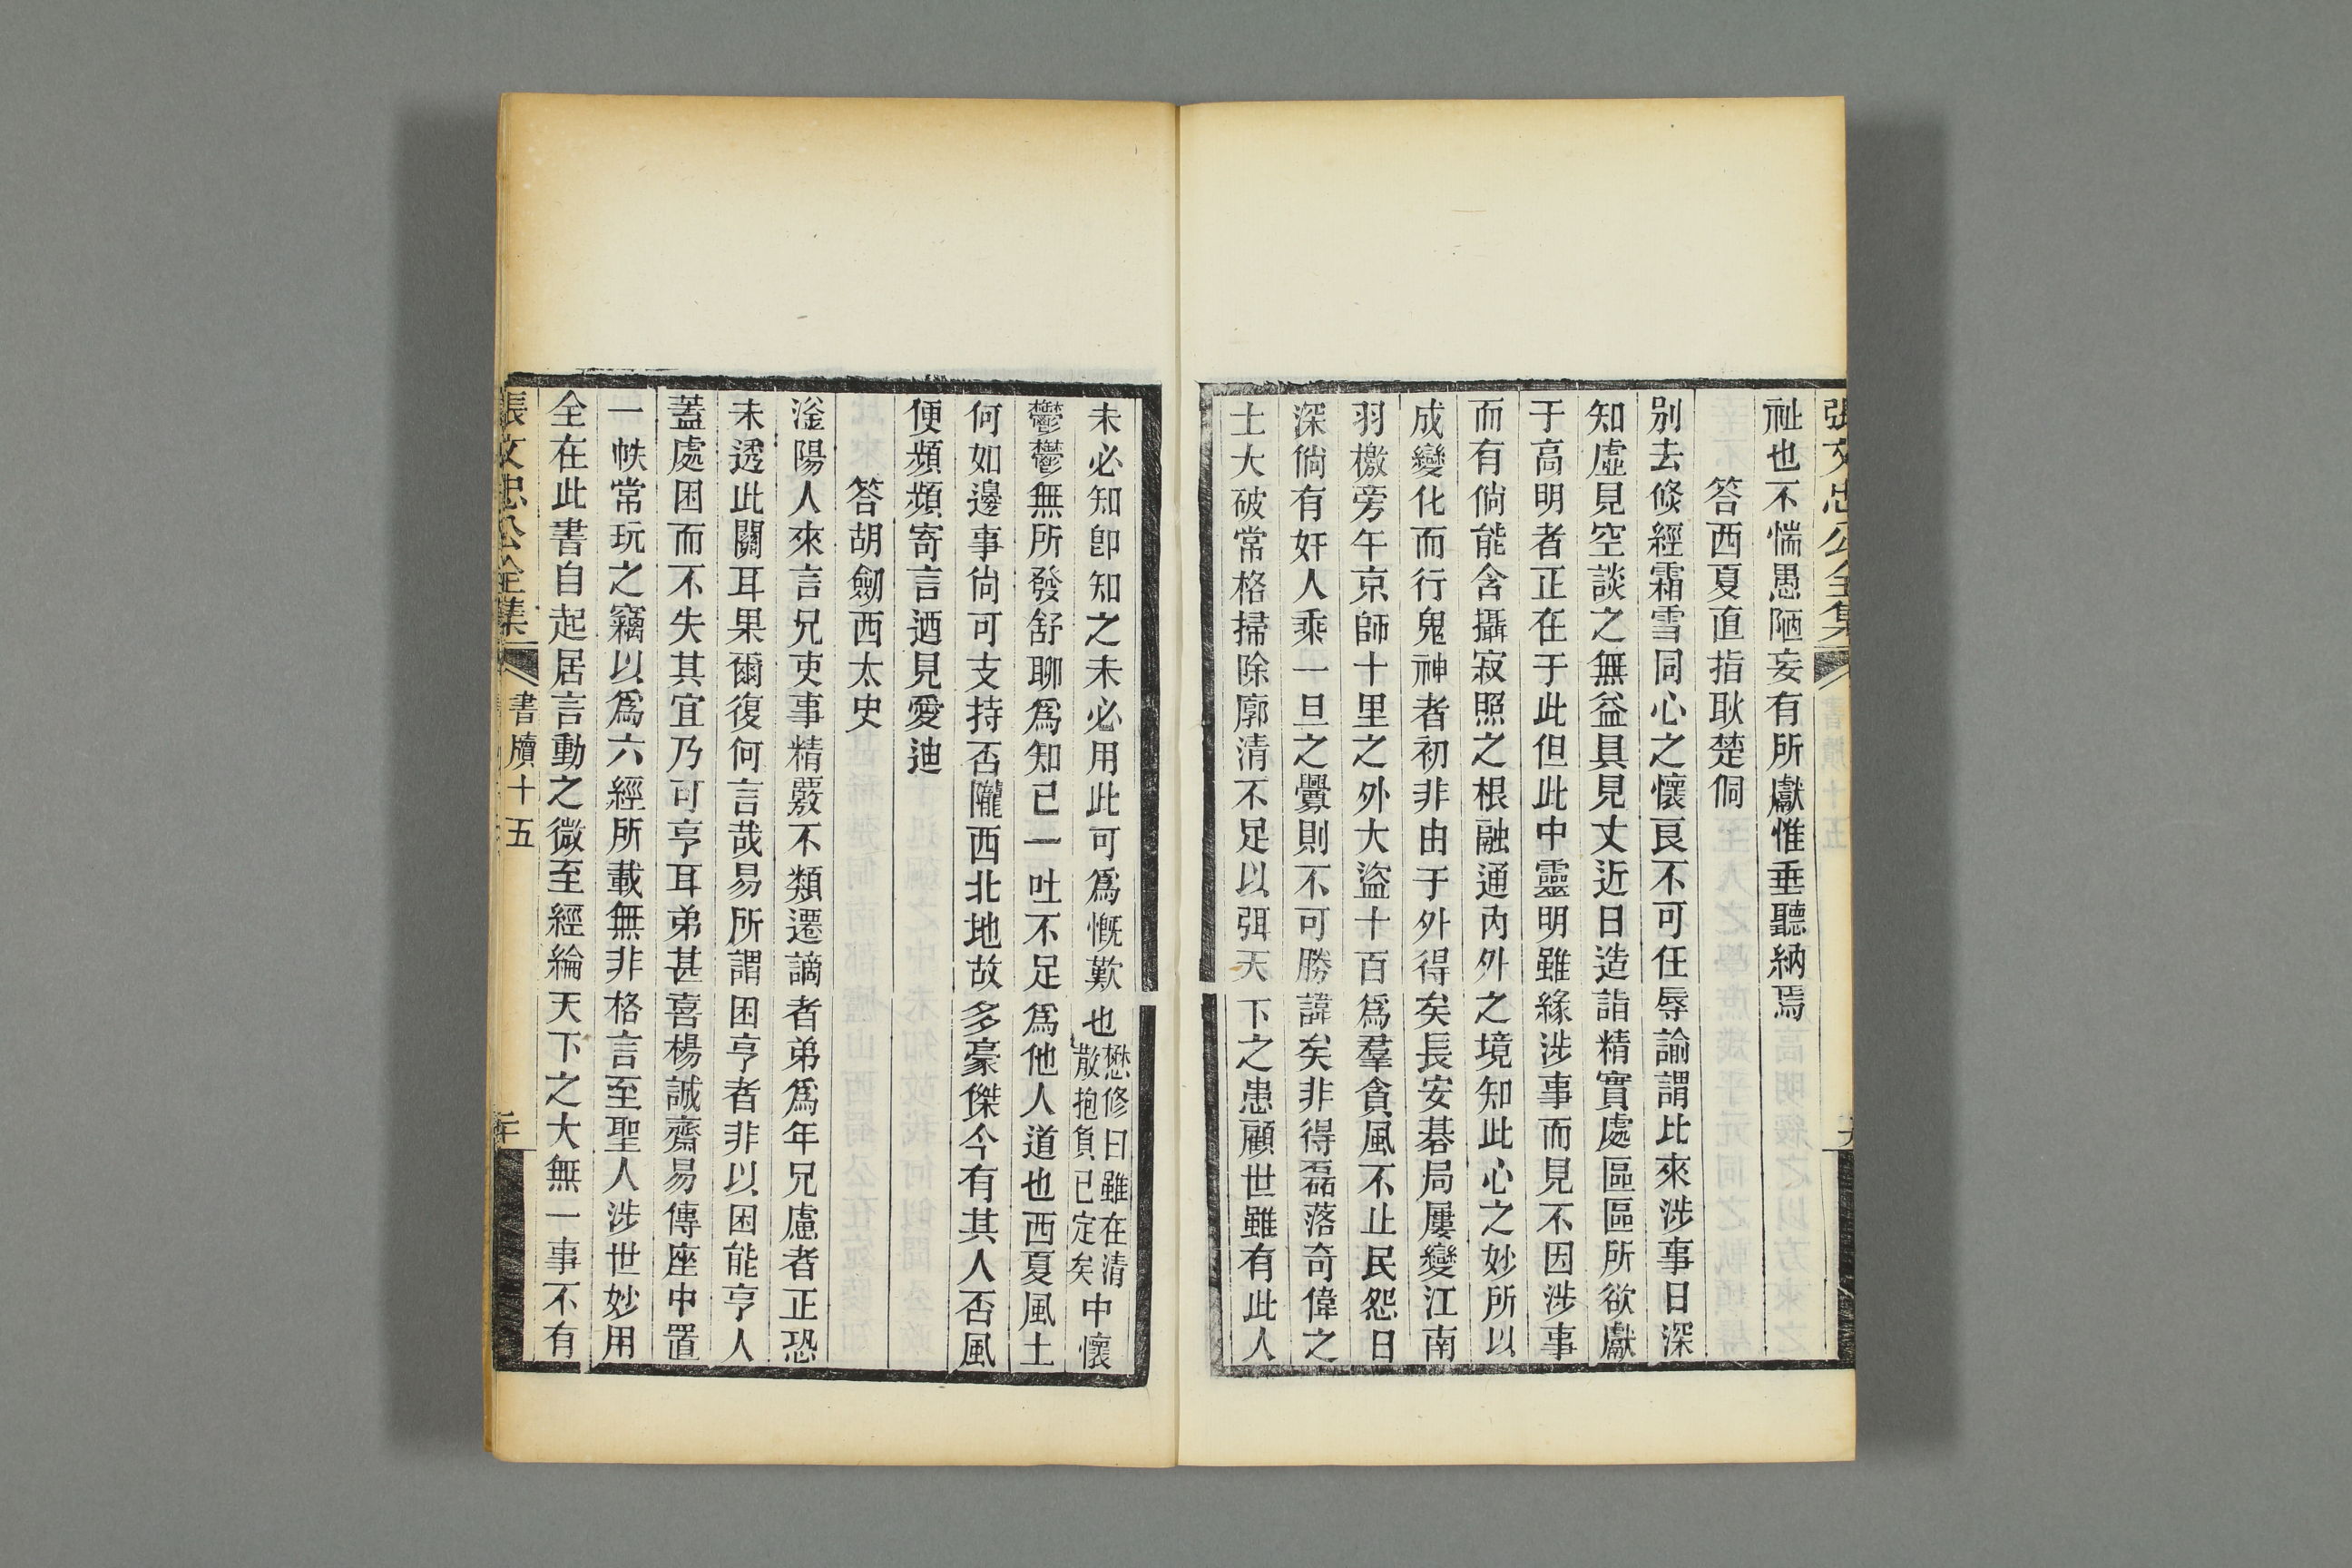 張文忠公全集
祉也不惴愚陋妄有所獻惟垂聽納焉
答西夏直指耿楚侗
別去倏經霜雪同心之懷良不可任辱諭謂比來涉事日深
知虛見空談之無益具見丈近日造詣精實處區區所欲獻
于高明者正在于此但此中靈明雖緣涉事而見不因涉事
而有倘能含攝寂照之根融通內外之境知此心之妙所以
成變化而行鬼神者初非由于外得矣長安碁局屢變江南
羽檄旁午京師十里之外大盜十百爲羣貪風不止民怨日
深倘有奸人乘一旦之釁則不可勝諱矣非得磊落奇偉之
士大破常格掃除廓清不足以弭天下之患顧世雖有此人
未必知卽知之未必用此可爲慨歎也懋修曰雖在清散抱負已定矣中懷
鬱鬱無所發舒聊爲知己一吐不足爲他人道也西夏風土
何如邊事尙可支持否隴西北地故多豪傑今有其人否風
便頻頻寄言迺見愛迪
答胡劒西太史
滏陽人來言兄吏事精覈不類遷謫者弟爲年兄慮者正恐
未透此關耳果爾復何言哉易所謂困亨者非以困能亨人
蓋處困而不失其宜乃可亨耳弟甚喜楊誠齋易傳座中置
一帙常玩之竊以爲六經所載無非格言至聖人涉世妙用
全在此書自起居言動之微至經綸天下之大無一事不有
張文忠公全集
書牘十五